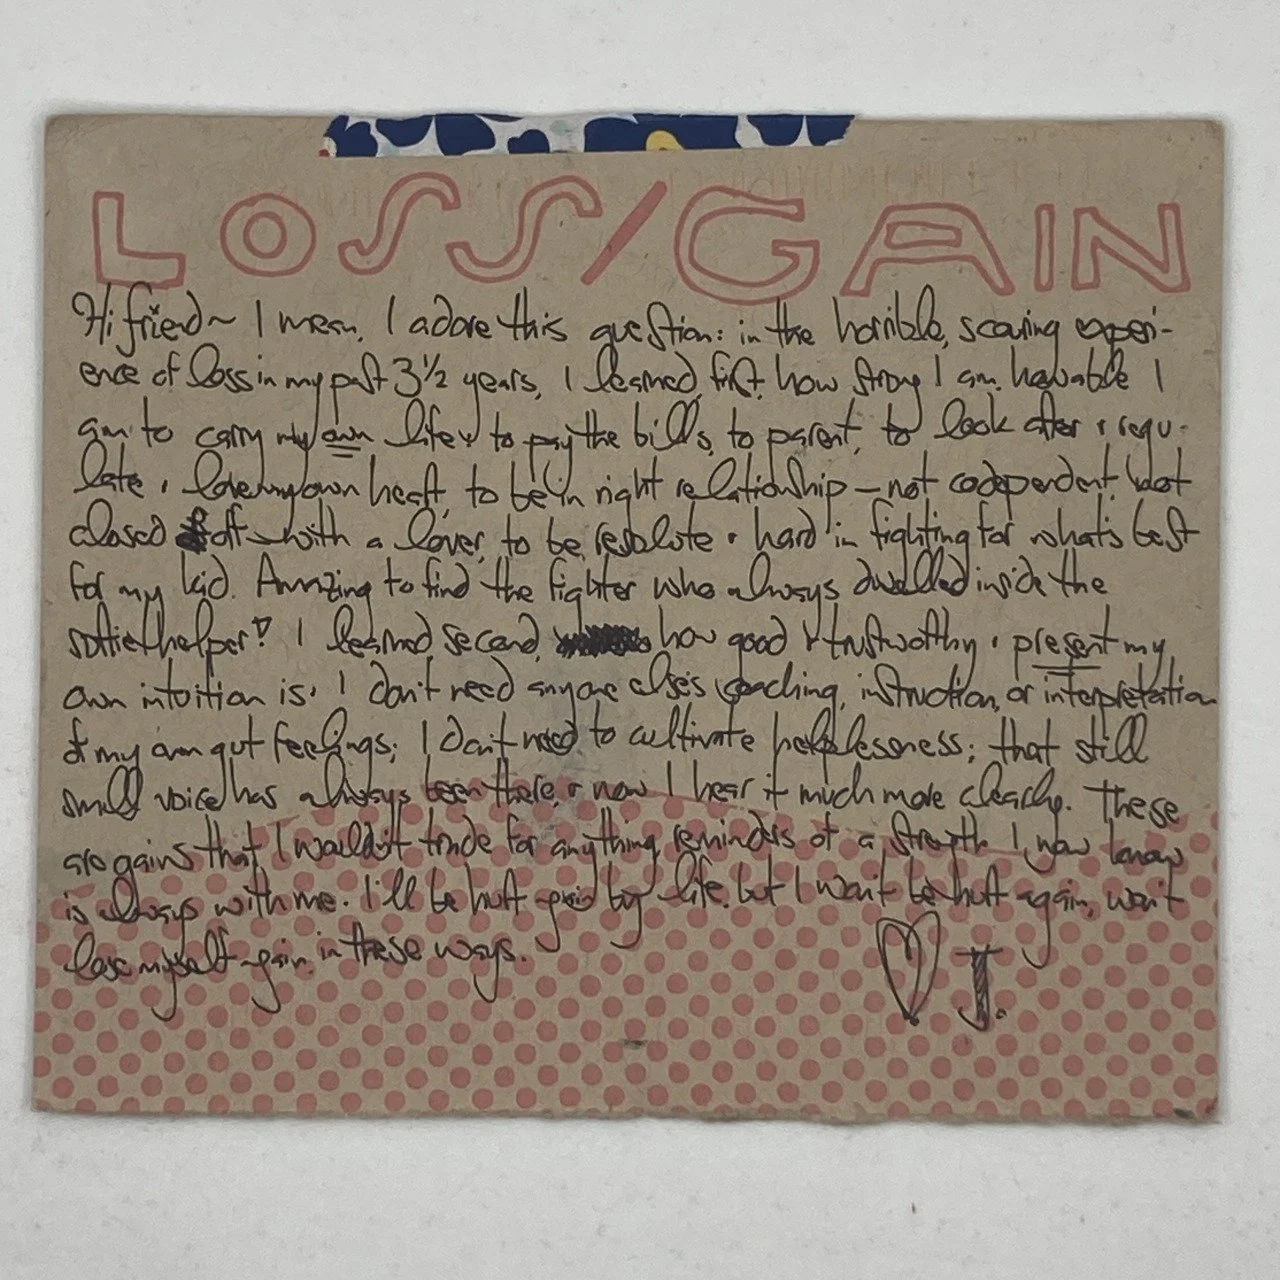 LOSS/GAIN
Hi friend~ I mean, I adore this question: in the horrible, scouring experi-
ence of loss in my past 3 1/2 years, I learned, first, how strong I am, how able I
am to carry my own life & to pay the bills, to parent, to look after & regu-
late & love my own heart, to be in right relationship – not codependent, not
closed off – with a lover, to be resolute & hard in fighting for what's best
for my kid. Amazing to find the fighter who always dwelled inside the
softie helper! I learned, second, how good & trustworthy & present my
own intuition is. I don't need anyone else's coaching, instruction, or interpretation
of my own gut feelings; I don't need to cultivate helplessness; that still
small voice has always been there, & now I hear it much more clearly. These
are gains that I wouldn't trade for anything, reminders of a strength I now know
is always with me. I'll be hurt again by life, but I won't be hurt again, won't
lose myself again, in these ways.
♡ J.